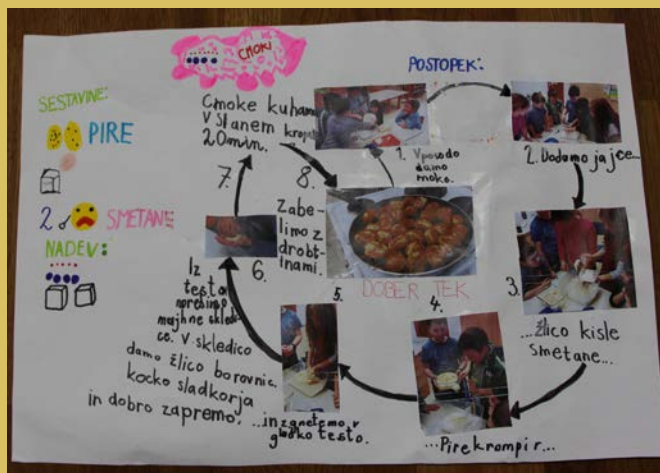 CMOKI
POSTOPEK:
SESTAVINE:
PIRE
2 SMETANE
NADEV:
1. V posodo
damo
moko.
2. Dodamo jajce...
3.
...žlico kisle
smetane...
4.
...Pire krompir...
5.
...in zgnetemo v
gladko testo.
6.
Iz
testa
naredimo
majhne skledi-
ce. V skledico
damo žlico borovnic,
kocko sladkorja
in dobro zapremo.
7.
Cmoke kuhamo
v slanem kropu
20min.
8.
Zabe-
limo z
drobti-
nami.
DOBER TEK